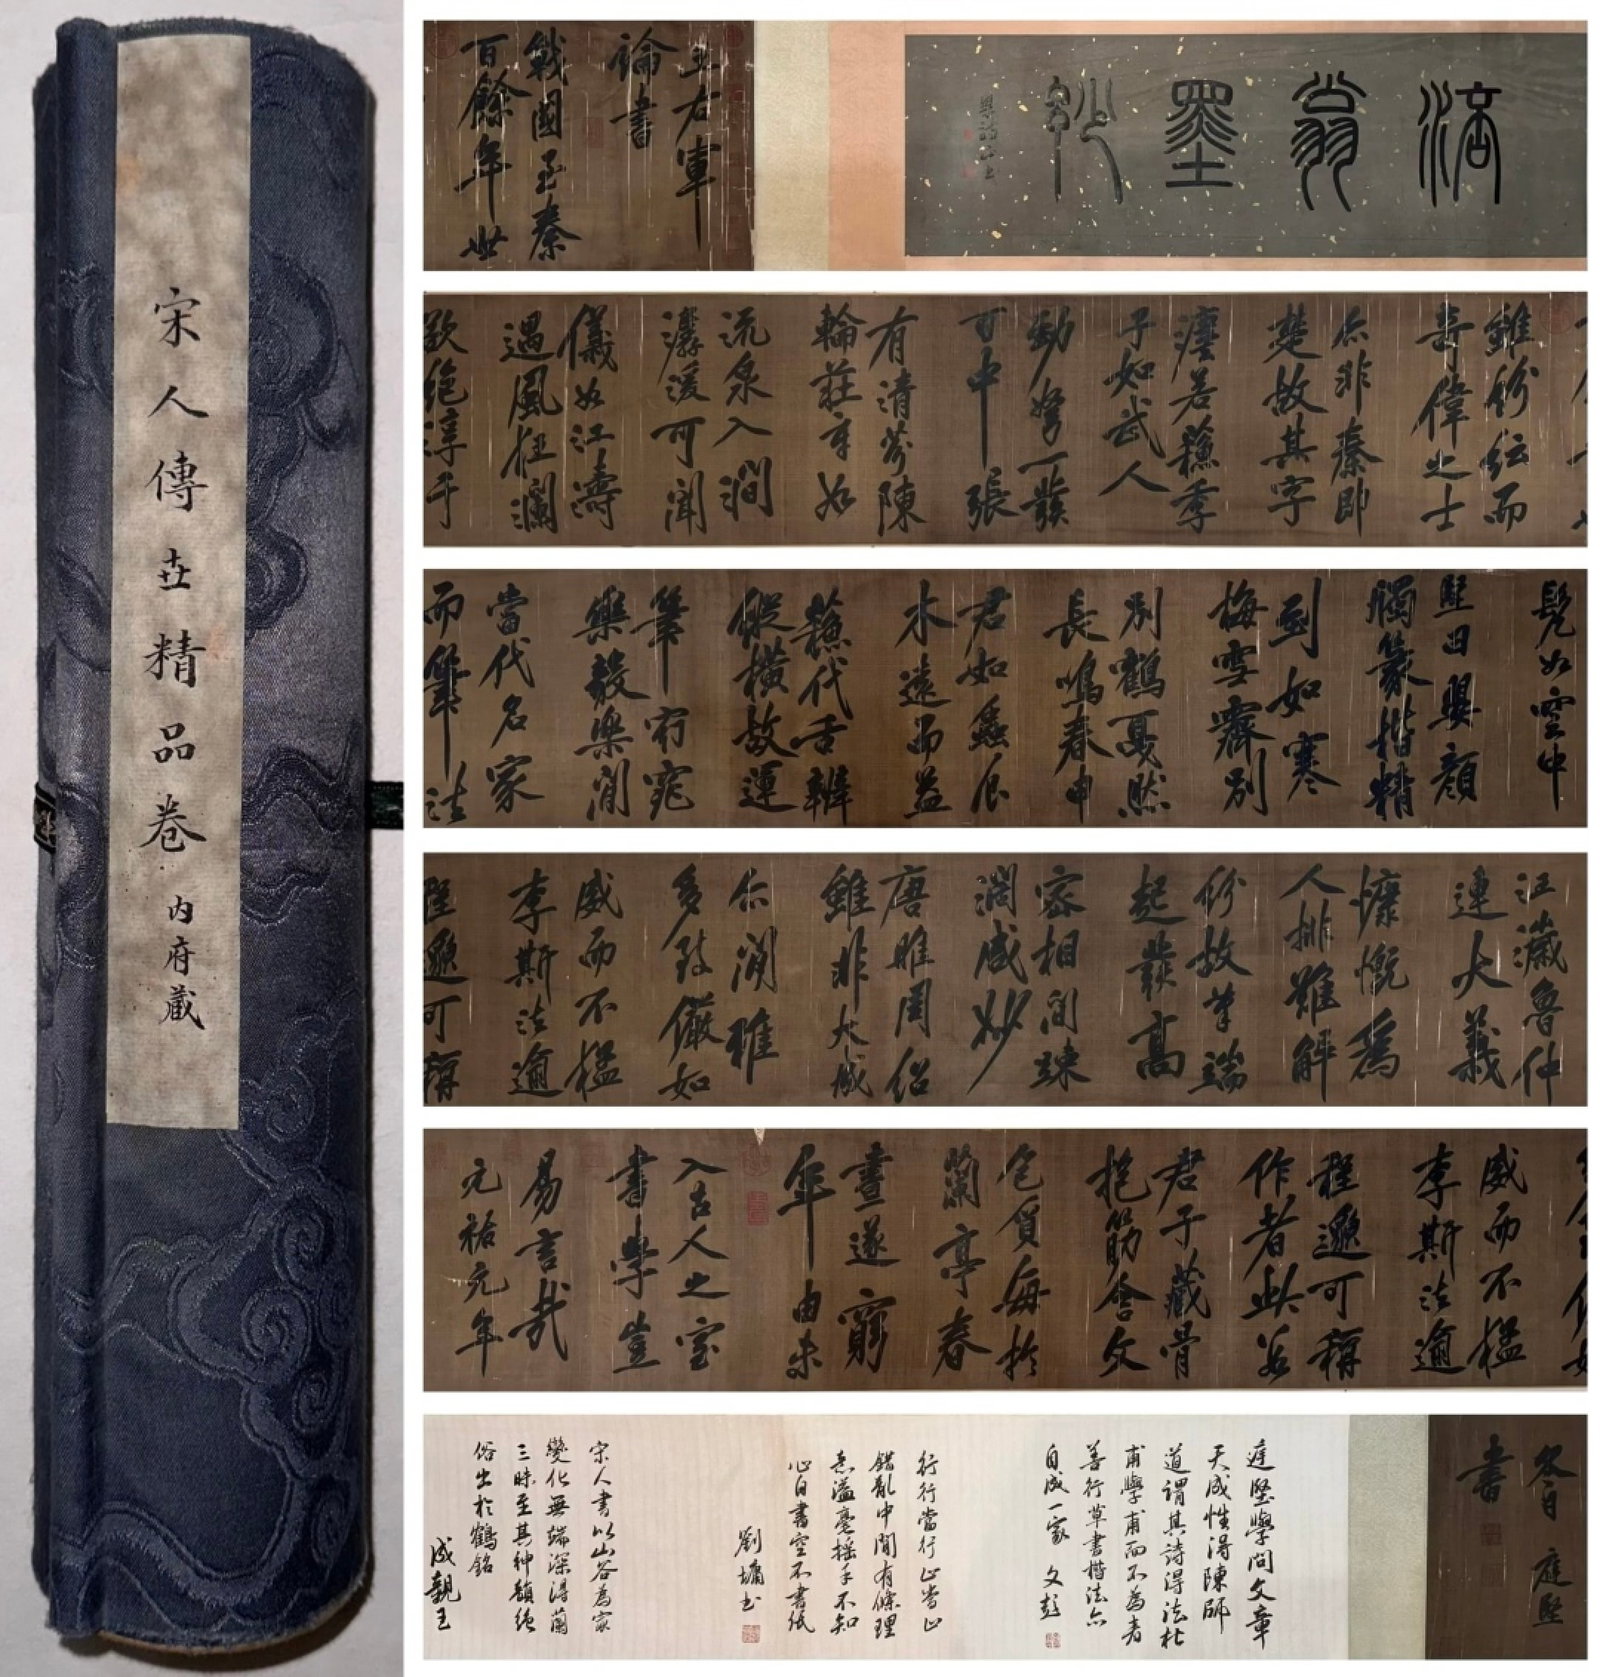 宋人傳世精品卷 內府藏
涪翁墨妙
王右軍
論書
戰國至秦
百餘年世
雖紛紜而
奇偉之士
亦非秦即
楚故其字
瘞若蘓季
子如武人
勁弩一發
百中張
有清芬陳
輪莊年如
流泉入澗
潺湲可聞
儀如江濤
遇風狂瀾
歎絕淳于
髡如雲中
堅田嬰顏
斶篆楷精
到如寒
梅雪霽別
別鶴戛然
長鳴春申
君如蟲食
木遠而益
蘓代舌辯
縱橫故運
筆窈窕
樂毅樂閒
當代名家
而筆法
江瀛魯仲
連大義
慷慨為
人排難解
紛故筆端
起發高
密相間疎
濶咸妙
唐雎周紹
雖非大成
亦閒雅
多致儼如
威而不猛
李斯法逾
程邈可稱
威而不猛
李斯法逾
程邈可稱
作者此若
君子藏骨
抱筋含文
包質每於
蘭亭春
晝遂窮
年由未
入古人之室
書學豈
易言哉
元祐元年
冬日 庭堅
書
庭堅學問文章
天成性得陳師
道謂其詩得法杜
甫學甫而不為者
善行草書楷法亦
自成一家 文彭
行行當行止當止
錯亂中間有條理
意溢毫搖手不知
心自書空不書紙
劉墉書
宋人書以山谷為最
變化無端深得蘭
三昧至其神韻絕
俗出於鶴銘
成親王